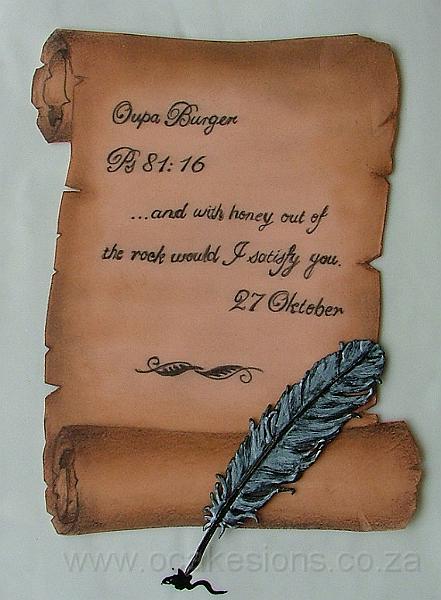 Oupa Burger
Ps 81:16
...and with honey out of
the rock would I satisfy you.
27 Oktober
www.ocakesions.co.za